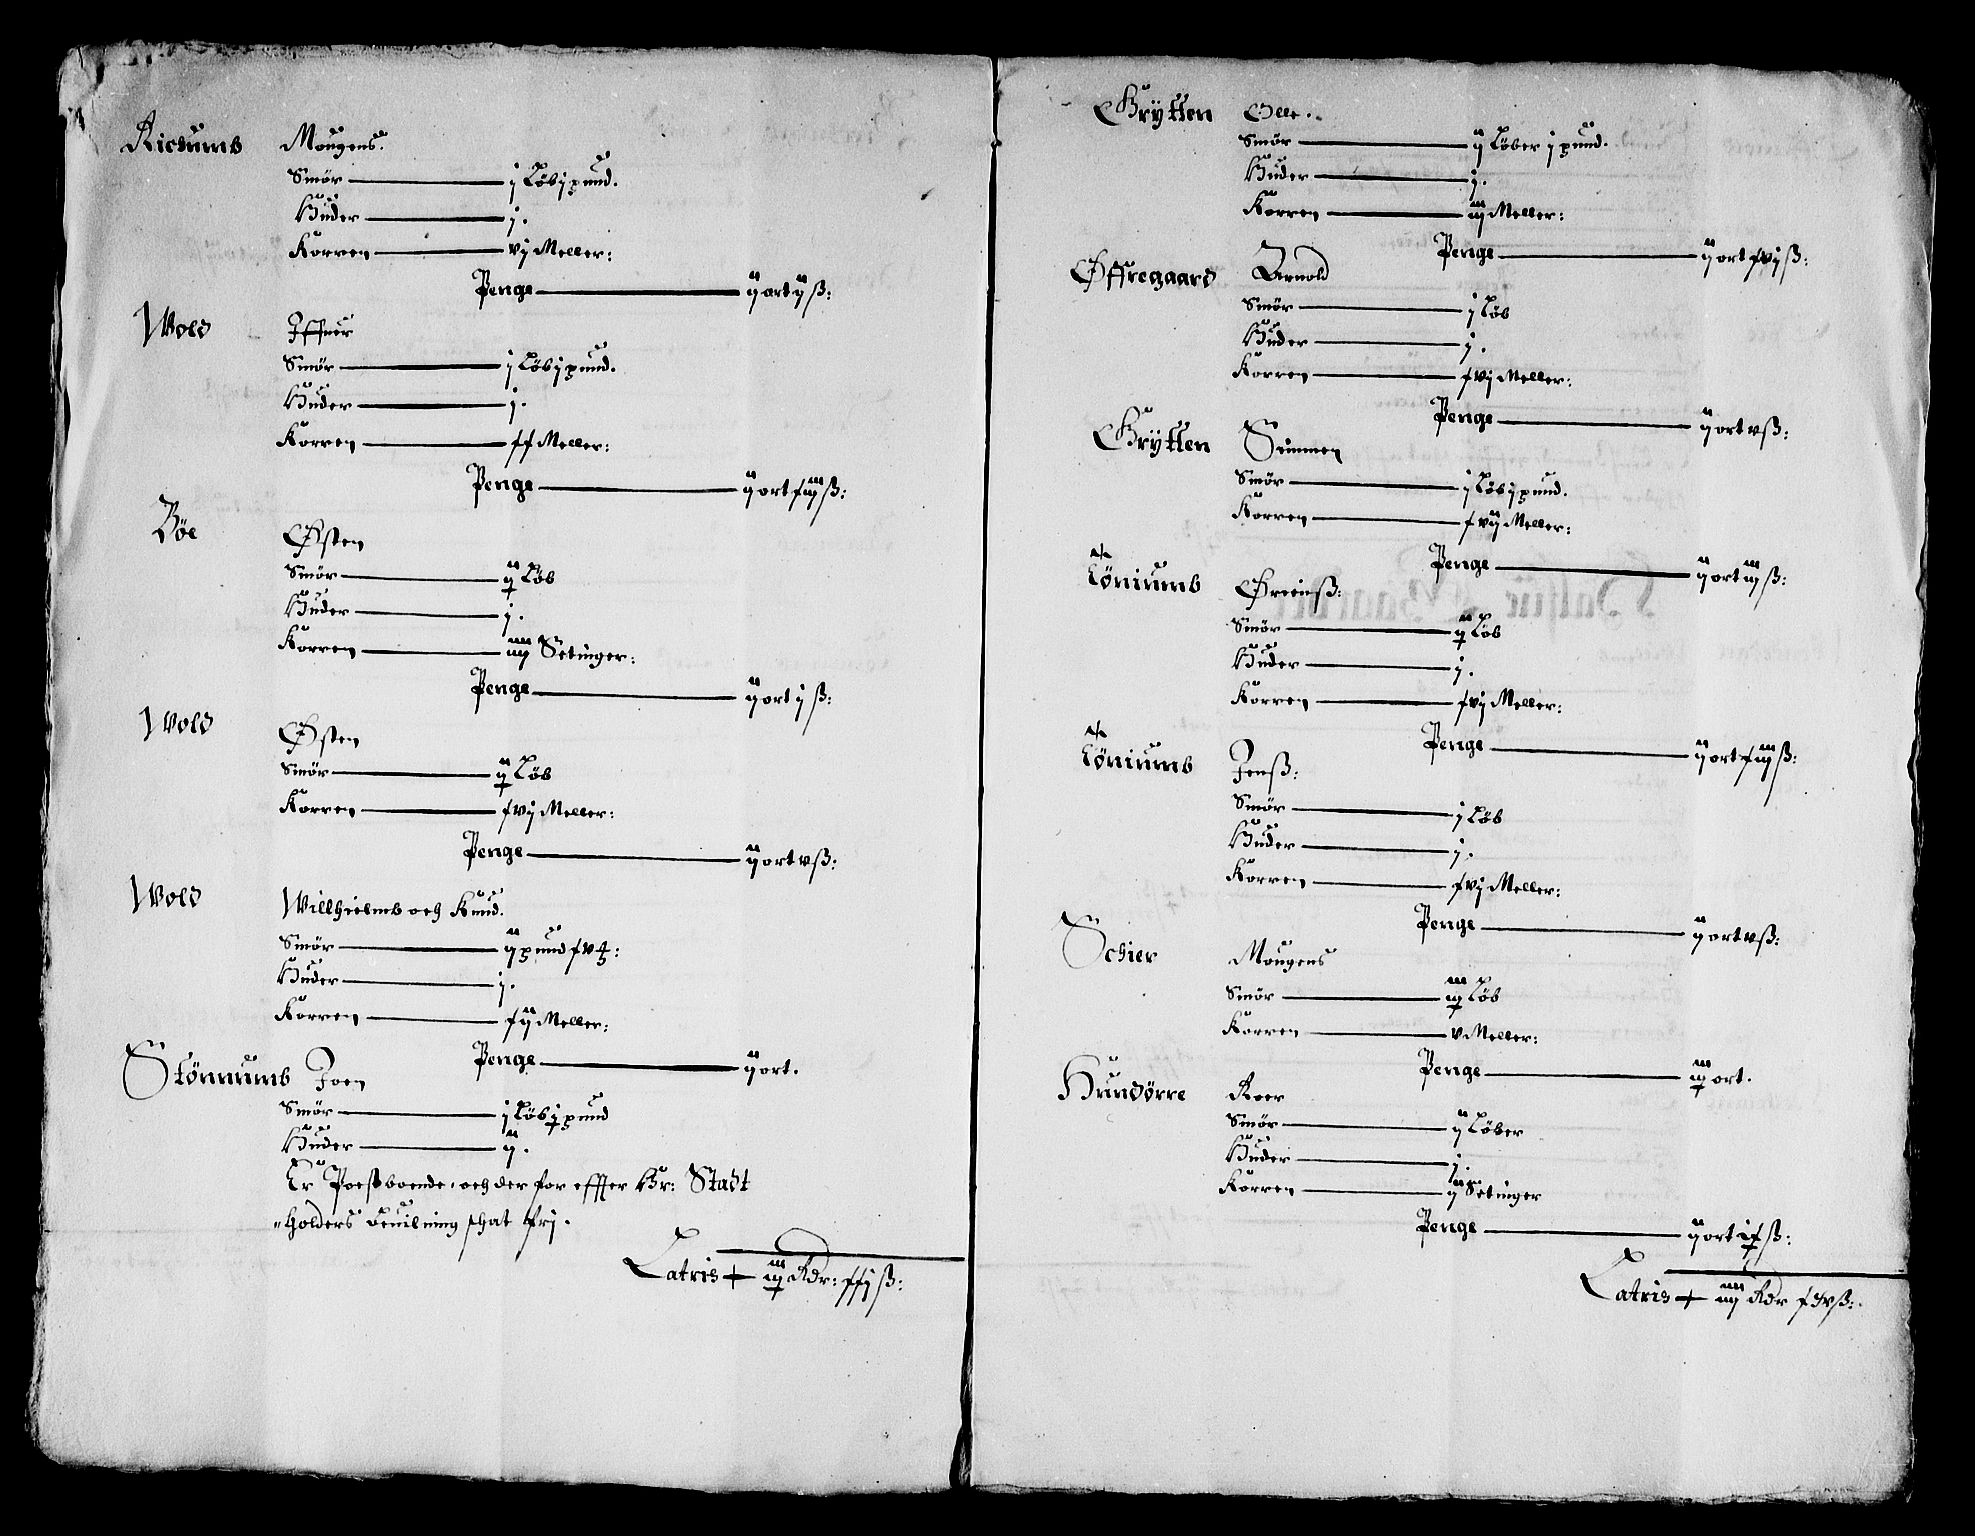 Mougens.
Smör — j Löb j pund.
Huder — j.
Korren — vj Meller:
Penge — ij ort ij ß:
Wold
Smör — j Löb j pund.
Huder — j.
Korren — Meller:
Penge — ij ort xiij ß:
Böe Østen
Smör — ij Löb
Huder — j.
Korren — iiij Setinger:
Penge — ij ort j ß:
Wold Østen
Smör — ij Löb
Korren — xvj Meller:
Penge — ij ort v ß:
Wold Willhielmb och Knud.
Smör — ij pund
Huder — j.
Korren — xij Meller:
Penge — ij ort.
Stönnumb Joen
Smör — j Löb j pund
Huder — ij.
Er Postboende, och der for effter Hr: Stadt
"holders Beuilning schat frj.
Latris + iij Rdr: xxj ß:
Brÿtten Olle.
Smör — ij Löber j pund.
Huder — j.
Korren — iij Meller:
Penge — ij ort xvj ß:
Øffregaard Arnold
Smör — j Löb
Huder — j.
Korren — xvj Meller:
Penge — ij ort v ß:
Brÿtten Simmen
Smör — j Löb j pund.
Korren — xvij Meller:
Penge — ij ort iij ß:
Löniumb
Smör — ij Löb
Huder — j.
Korren — xvj Meller:
Penge — ij ort xiij ß:
Löniumb Jenß:
Smör — j Löb
Huder — j.
Korren — xvj Meller:
Penge — ij ort v ß:
Schier Mougens
Smör — iij Löb
Korren — v Meller:
Penge — iij ort.
Hundörre Roer
Smör — ij Löber
Huder — j.
Korren — ij Setinger
Penge — ij ort ix ß:
Latris + iiij Rdr xxv ß: